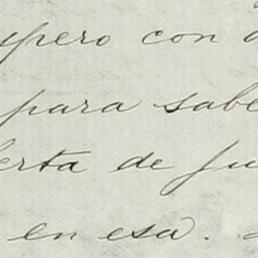 spero con
para sabe
erta de Ju
en esa.